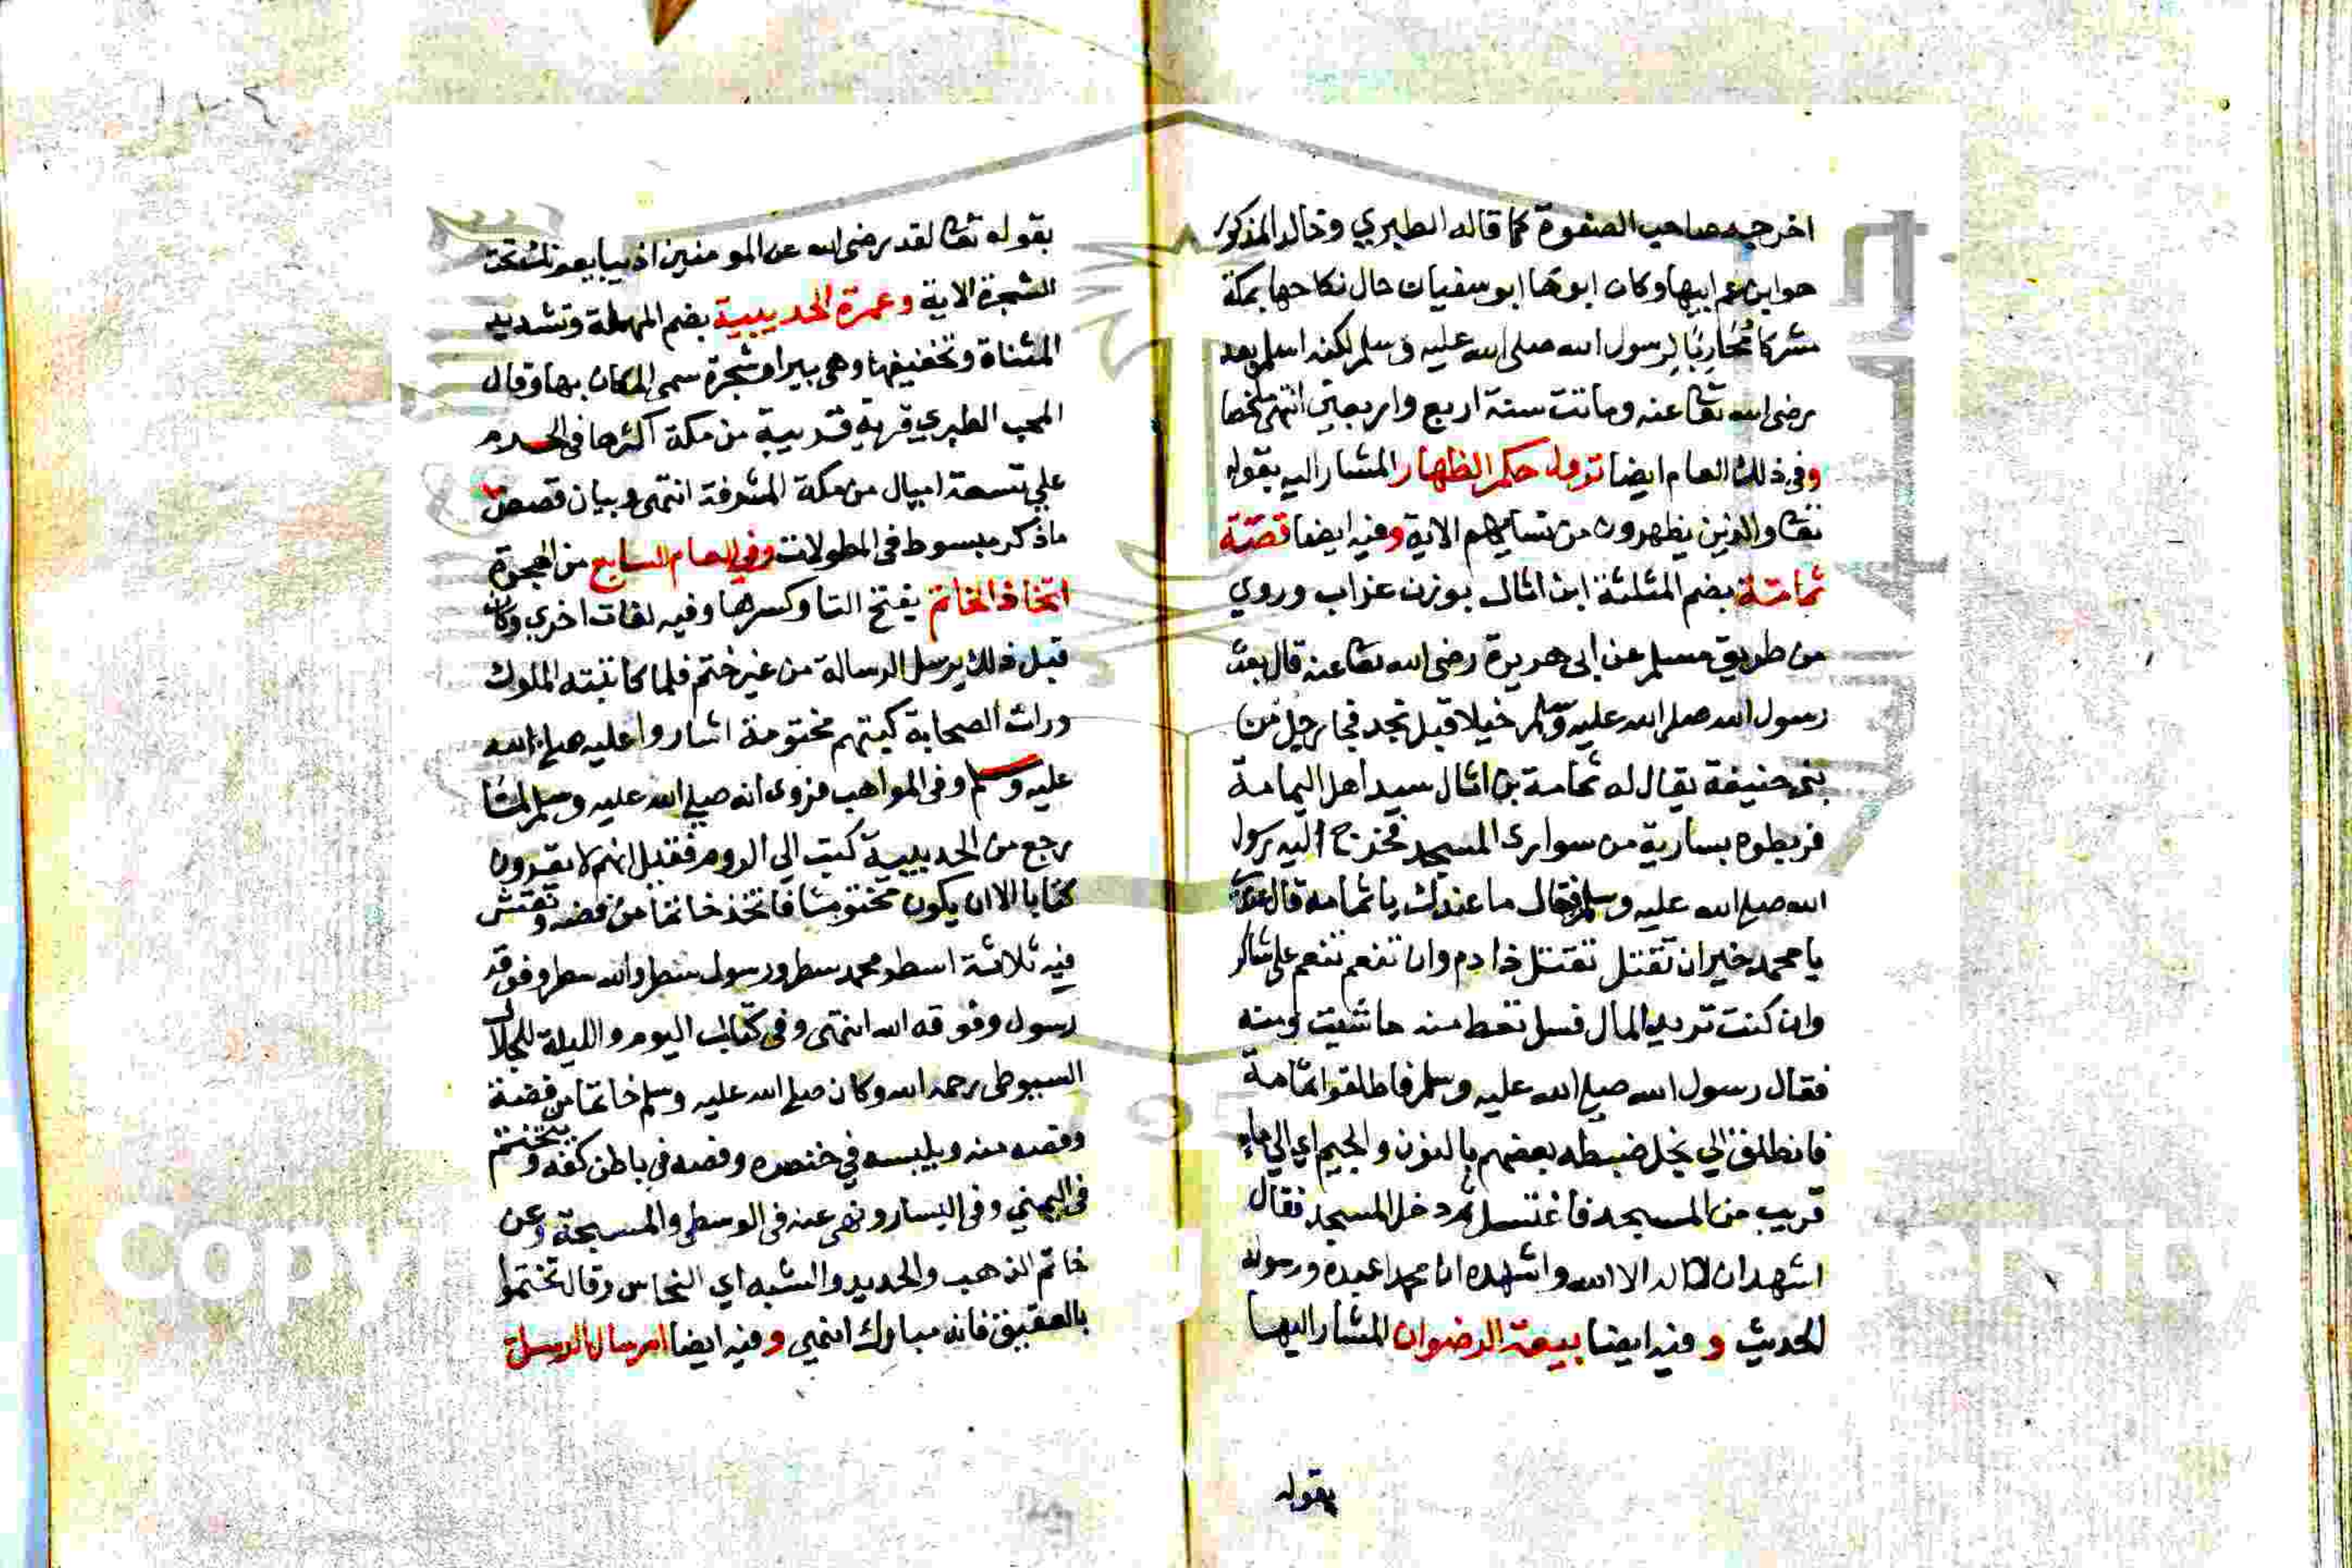 اخرجه صاحب الصفوة كما قاله الطبري وخالد المذكور
هو ابن عم ابيها وكان ابوها ابو سفيان حال نكاحها بمكة
مشركا مُحَارِبًا لرسول الله صلى الله عليه وسلم لكنه اسلم بعد
رضى الله تعا عنه وماتت سنة اربع واربعين انتهى ملخصا
وفى ذلك العام ايضا نزول حكم الظهار المشار اليه بقوله
تعا والذين يظهرون من نسايهم الاية وفيه ايضا قصّة
ثمامة بضم المثلثة ابن اثال بوزن غراب وروي
من طريق مسلم عن ابى هريرة رضى الله تعا عنه قال بعث
رسول الله صلى الله عليه وسلم خيلا قبل نجد فجا برجل من
بنى حنيفة يقال له ثمامة بن اثال سيد اهل اليمامة
فربطوه بسارية من سوارى المسجد فخرج اليه رسول
الله صلى الله عليه وسلم فقال ما عندك يا ثمامة قال عندى
يا محمد خير ان تقتل تقتل ذا دم وان تنعم تنعم على شاكر
وان كنت تريد المال فسل تعط منه ما شيت ومنه
فقال رسول الله صلى الله عليه وسلم فاطلقوا ثمامة
فانطلق الي نجل ضبطه بعضهم بالنون والجيم اي الي ماء
قريب من المسجد فاغتسل ثم دخل المسجد فقال
اشهد ان لا اله الا الله واشهد ان محمدا عبده ورسوله
الحديث و فيه ايضا بيعة الرضوان المشار اليها
بقوله
بقوله تعا لقد رضى الله عن المومنين اذ يبايعونك تحت
الشجرة الاية وعمرة الحديبية بضم المهملة وتشديد
المثناة وتخفيفها وهى بير او شجرة سمى المكان بها وقال
المحب الطبري قرية قريبة من مكة اكثرها فى الحرم
علي تسعة اميال من مكة المشرفة انتهى وبيان قصص
ما ذكر مبسوط فى المطولات وفي العام السابع من الهجرة
اتخاذ الخاتم بفتح التا وكسرها وفيه لغات اخري وكان
قبل ذلك يرسل الرسالة من غير ختم فلما كاتبته الملوك
ورات الصحابة كتبهم مختومة اشاروا عليه صلى الله
عليه وسلم وفى المواهب فروى انه صلى الله عليه وسلم لما
رجع من الحديبية كتب الي الروم فقيل انهم لا يقرون
كتابا الا ان يكون مختوما فاتخذ خاتما من فضه ونقش
فيه ثلاثة اسطر محمد سطر ورسول سطر والله سطر وفوقه
رسول وفوقه الله انتهى وفى كتاب اليوم والليلة للجلال
السيوطى رحمه الله وكان صلى الله عليه وسلم خاتما من فضة
وفصه منه ويلبسه في خنصره وفصه فى باطن كفه ويختم
فى اليمني وفى اليسار ونهى عنه فى الوسطى والمسبحة وعن
خاتم الذهب والحديد والشبه اي النحاس وقال تختموا
بالعقيق فانه مبارك انتهي وفيه ايضا ارسال الرسل